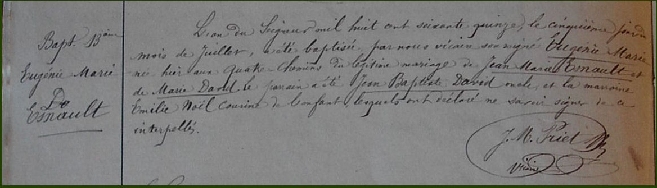 Bapt. 13ème
Eugénie Marie
De
Esnault
L'an du Seigneur mil huit cent soixante quinze, le cinquième jour du
mois de Juillet, a été baptisée, par nous vicaire sous signé Eugénie Marie
née hier aux Quatre Chemins du légitime mariage de Jean Marie Esnault et
de Marie David le parrain a été Jean Baptiste David oncle, et la marraine
Emilie Noël cousine de l'enfant lesquels ont déclaré ne savoir signer de ce
interpellés.
J. M. Priet
Vicaire